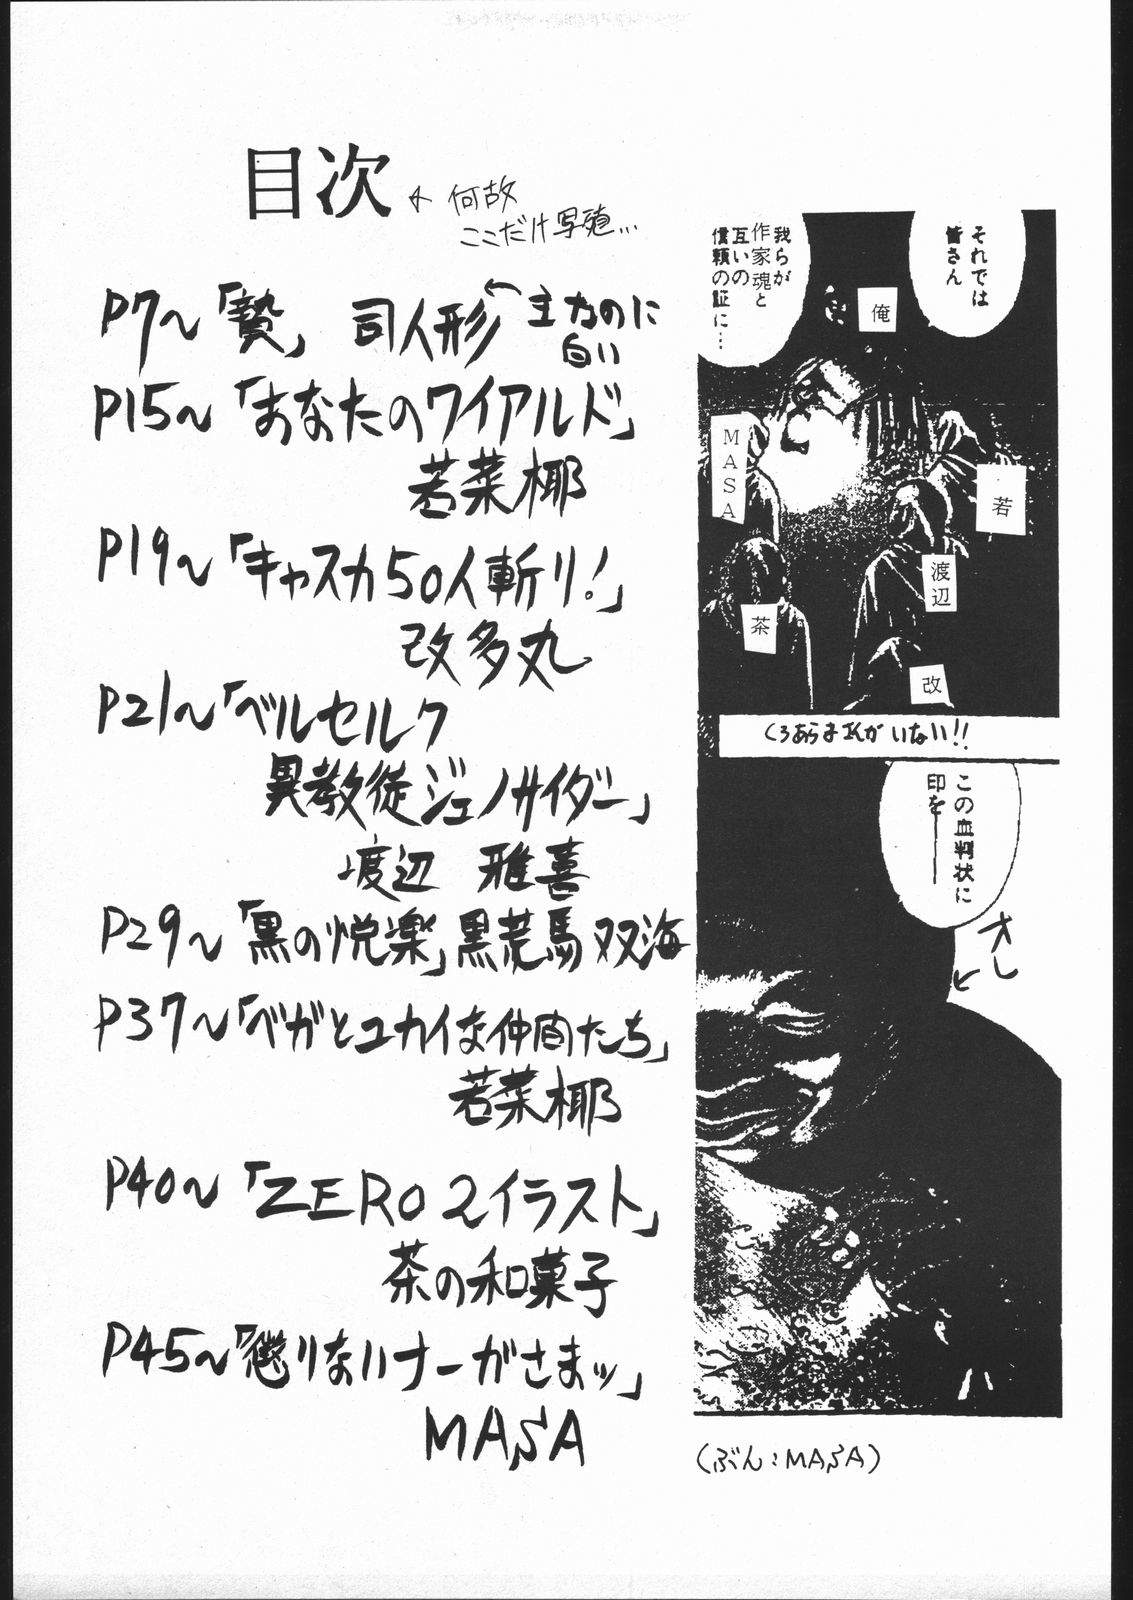 目次
何故
ここだけ写植…
P7〜「贄」 司人形
P15〜「あなたのワイアルド」
若菜椰
P19〜「キャスカ50人斬り！」
改多丸
P21〜「ベルセルク
異教徒ジェノサイダー」
渡辺 雅喜
P29〜「黒の悦楽」黒荒馬 双海
P37〜「ベガとユカイな仲間たち」
若菜椰
P40〜「ZERO2イラスト」
茶の和菓子
P45〜「懲りないナーガさまッ」
MASA
それでは
皆さん
我らが
作家魂と
互いの
信頼の証に…
俺
MASA
若
渡辺
茶
改
くろあらま氏がいない!!
この血判状に
印を――
オレ
(ぶん:MASA)